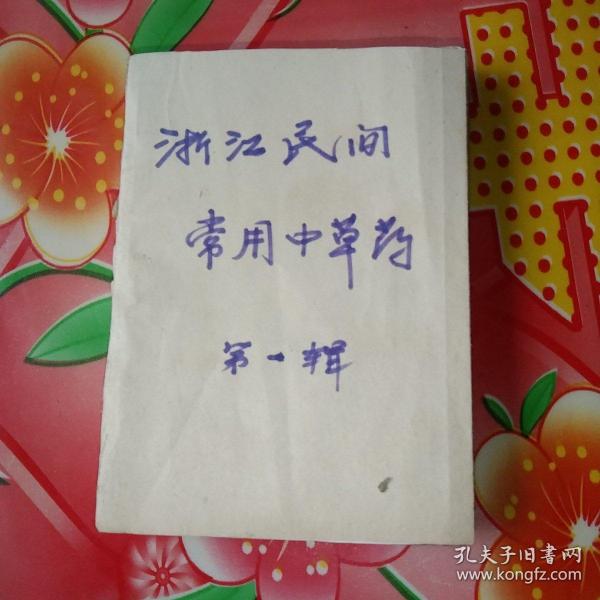 浙江民间
常用中草药
第一辑
孔夫子旧书网
www.kongfz.com